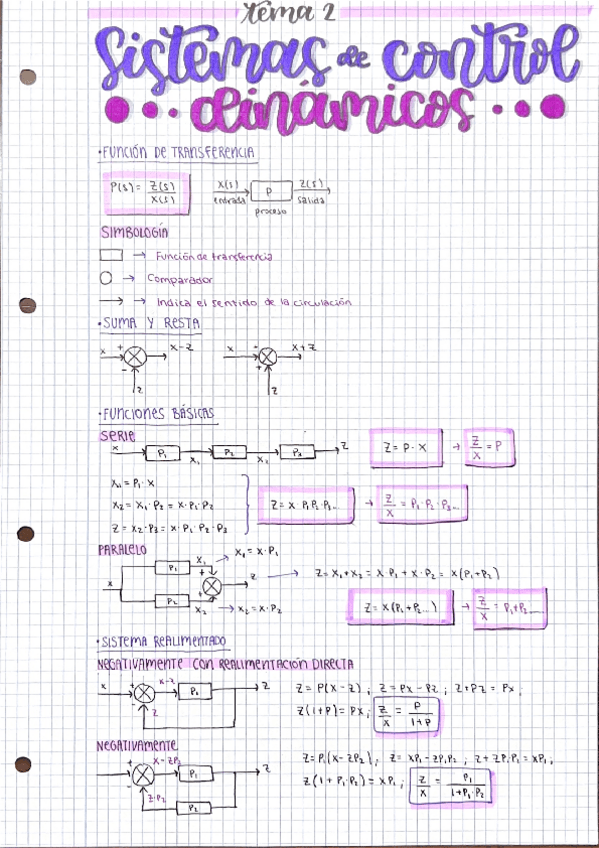 tema 2
Sistemas de control
dinámicos
• FUNCIÓN DE TRANSFERENCIA
P(s) = Z(s) / X(s)
X(s) entrada P proceso Z(s) salida
SIMBOLOGÍA
→ Función de transferencia
→ Comparador
→ Indica el sentido de la circulación
• SUMA Y RESTA
x + - z x-z
x - + z x+z
• FUNCIONES BÁSICAS
SERIE
x P₁ x₁ P₂ x₂ P₃ z
Z = P · X → Z/X = P
X₁ = P₁ · X
X₂ = X₁ · P₂ = X · P₁ · P₂
Z = X₂ · P₃ = X · P₁ · P₂ · P₃
Z = X P₁ P₂ P₃... → Z/X = P₁ · P₂ · P₃...
PARALELO
x P₁ x₁ → x₁ = x · P₁
P₂ x₂ → x₂ = x · P₂
+ + z → Z = X₁ + X₂ = X P₁ + X · P₂ = X(P₁+P₂)
Z = X(P₁+P₂...) → Z/X = P₁+P₂...
• SISTEMA REALIMENTADO
NEGATIVAMENTE CON REALIMENTACIÓN DIRECTA
x + - x-z P₁ z z
Z = P(X-Z) ; Z = PX - PZ ; Z+PZ = PX ;
Z(1+P) = PX ; Z/X = P / 1+P
NEGATIVAMENTE
+ - X-ZP₂ P₁ z Z·P₂ P₂
Z = P₁(X-ZP₂) ; Z = XP₁ - ZP₁P₂ ; Z + ZP₁P₂ = XP₁ ;
Z(1+P₁·P₂) = XP₁ ; Z/X = P₁ / 1+P₁·P₂